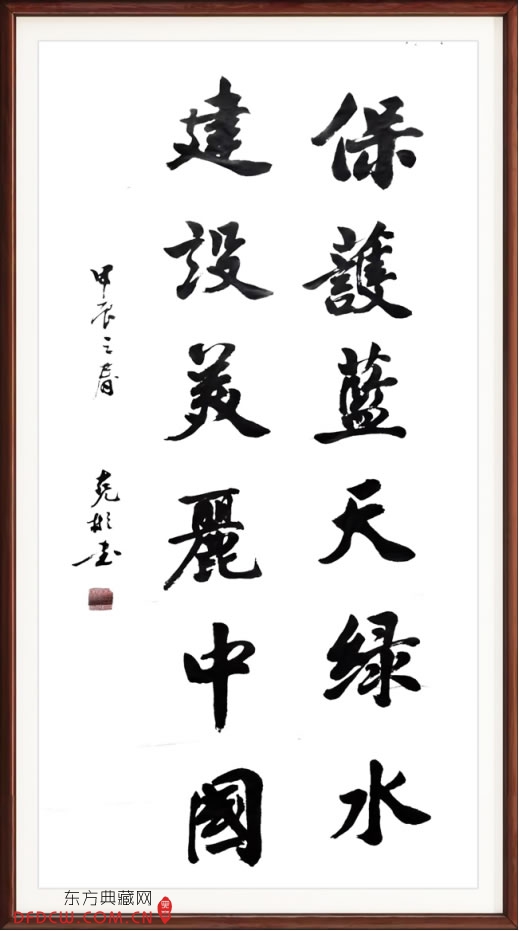 保護藍天绿水
建設美麗中國
甲辰之春 堯彬书
东方典藏网
DFDCW.COM.CN